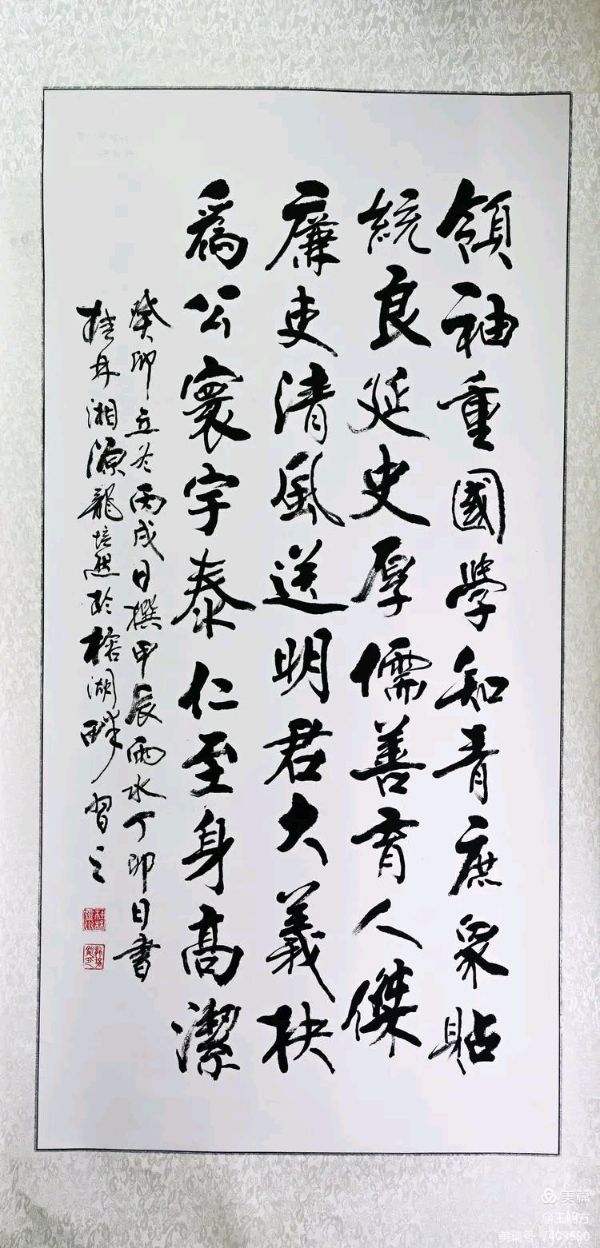 領袖重國學知青庶衆貼
統良延史厚儒善育人傑
廉吏清風送明君大義抉
爲公寰宇泰仁至身高潔
癸卯立冬丙戌日撰甲辰雨水丁卯日書
桂舟湘源龍培 於榕湖畔習之
美篇
@王明方